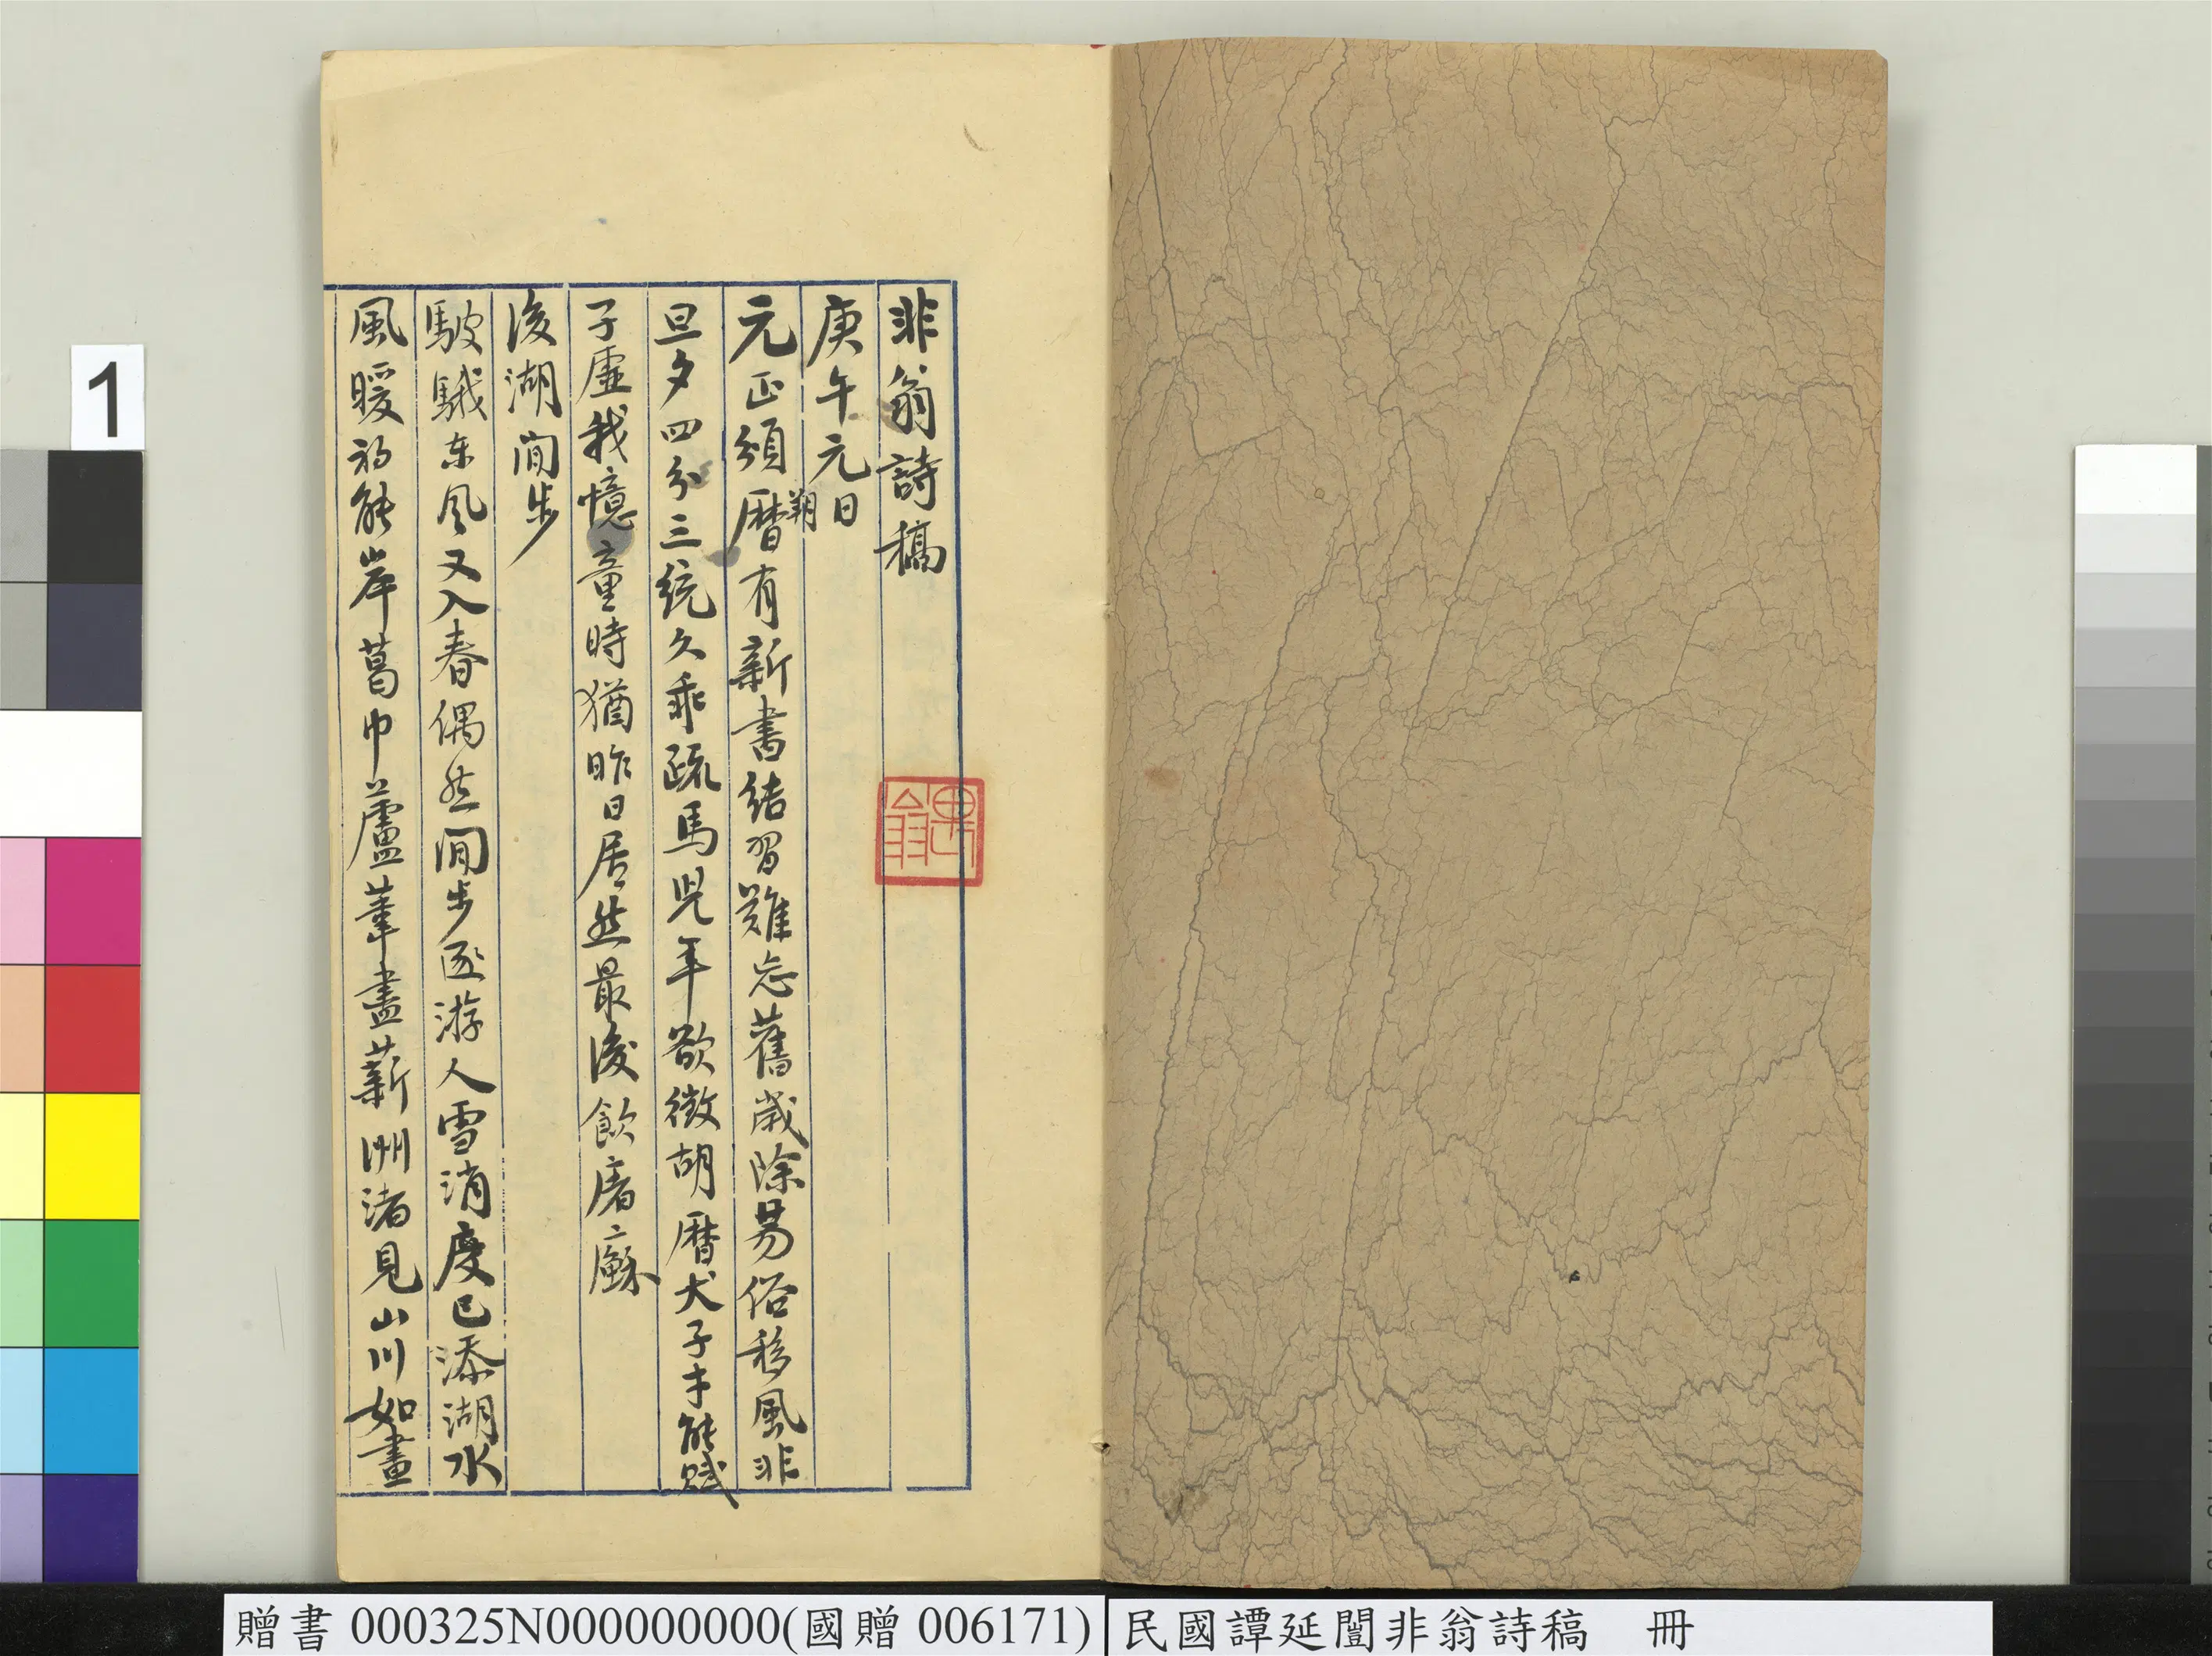 非翁詩稿
庚午元日
元正頒曆有新書結習難忘舊歲除易俗移風非
朔
旦夕四分三統久乖疏馬兒年欲徵胡曆犬子才能賦
子虛我憶童時猶昨日居然最後飲屠蘇
後湖閒步
駊騀東風又入春偶然閒步逐游人雪消度已添湖水
風暖初能岸葛巾蘆葦盡薪洲渚見山川如畫
翁
1
贈書 000325N000000000(國贈 006171)
民國譚延闓非翁詩稿 冊